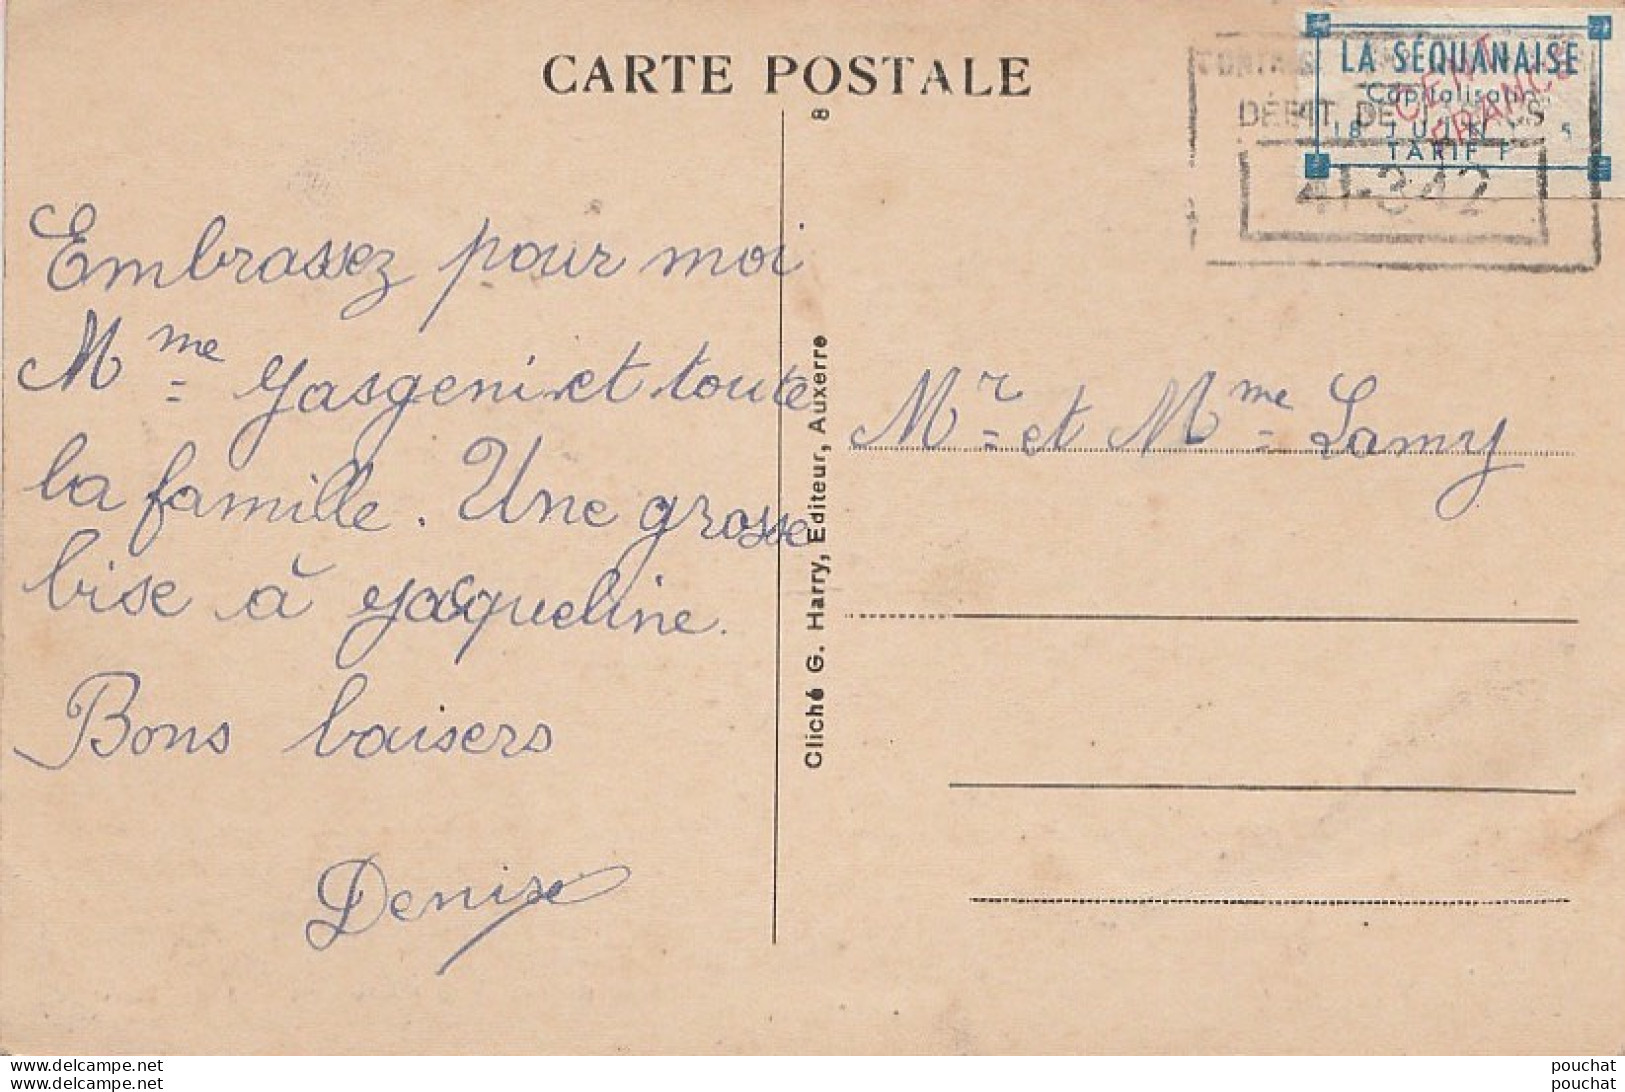 CARTE POSTALE
LA SÉQUANAISE
Capitalisation
18 JUIN
TARIF
CENT
FRANCS
DÉBIT DE TABACS
41-342
8
Cliché G. Harry, Editeur, Auxerre
Embrassez pour moi
Mme et toute
la famille. Une grosse
bise à Jacqueline.
Bons baisers
Denise
Mr et Mme Lamy
delcampe.net
pouchat
delcampe.net
pouchat